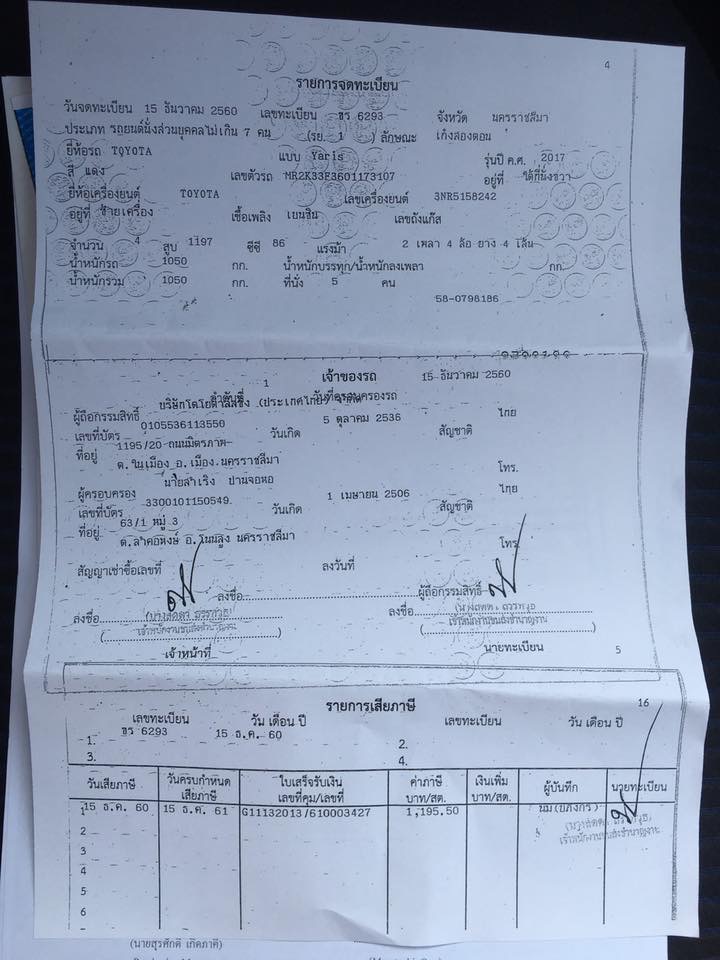 4
รายการจดทะเบียน
วันจดทะเบียน 15 ธันวาคม 2560 เลขทะเบียน ขร 6293 จังหวัด นครราชสีมา
ประเภท รถยนต์นั่งส่วนบุคคลไม่เกิน 7 คน (รย. 1) ลักษณะ เก๋งสองตอน
ยี่ห้อรถ TOYOTA แบบ Yaris รุ่นปี ค.ศ. 2017
สี แดง เลขตัวรถ MR2K33F3601173107 อยู่ที่ ใต้ที่นั่งขวา
ยี่ห้อเครื่องยนต์ TOYOTA เลขเครื่องยนต์ 3NR5158242
อยู่ที่ ซ้ายเครื่อง เชื้อเพลิง เบนซิน เลขถังแก๊ส
จำนวน 4 สูบ 1197 ซีซี 86 แรงม้า 2 เพลา 4 ล้อ ยาง 4 เส้น
น้ำหนักรถ 1050 กก. น้ำหนักบรรทุก/น้ำหนักลงเพลา กก.
น้ำหนักรวม 1050 กก. ที่นั่ง 5 คน
58-0798186
เจ้าของรถ
ลำดับที่ 1 วันที่ครอบครองรถ 15 ธันวาคม 2560
ผู้ถือกรรมสิทธิ์ บริษัทโตโยต้าลีสซิ่ง (ประเทศไทย) จำกัด
เลขที่บัตร 0105536113550 วันเกิด 5 ตุลาคม 2536 สัญชาติ ไทย
ที่อยู่ 1195/20 ถนนมิตรภาพ
ต.ในเมือง อ.เมือง นครราชสีมา โทร.
ผู้ครอบครอง นายสำเริง ปานจอหอ
เลขที่บัตร 3300101150549 วันเกิด 1 เมษายน 2506 สัญชาติ ไทย
ที่อยู่ 63/1 หมู่ 3
ต.ลำคอหงษ์ อ.โนนสูง นครราชสีมา โทร.
สัญญาเช่าซื้อเลขที่ ลงวันที่
ลงชื่อ ผู้ถือกรรมสิทธิ์
ลงชื่อ ลงชื่อ
เจ้าพนักงานขนส่งชำนาญงาน เจ้าพนักงานขนส่งชำนาญงาน
เจ้าหน้าที่ นายทะเบียน
5
16
รายการเสียภาษี
เลขทะเบียน วัน เดือน ปี เลขทะเบียน วัน เดือน ปี
1. ขร 6293 15 ธ.ค. 60 2.
3. 4.
วันเสียภาษี วันครบกำหนดเสียภาษี ใบเสร็จรับเงิน เลขที่คุม/เลขที่ ค่าภาษี บาท/สต. เงินเพิ่ม บาท/สต. ผู้บันทึก นายทะเบียน
1 15 ธ.ค. 60 15 ธ.ค. 61 G11132013/610003427 1,195.50
เจ้าพนักงานขนส่งชำนาญงาน
2
3
4
5
6
(นายสุรศักดิ์ เกิดภาคี)